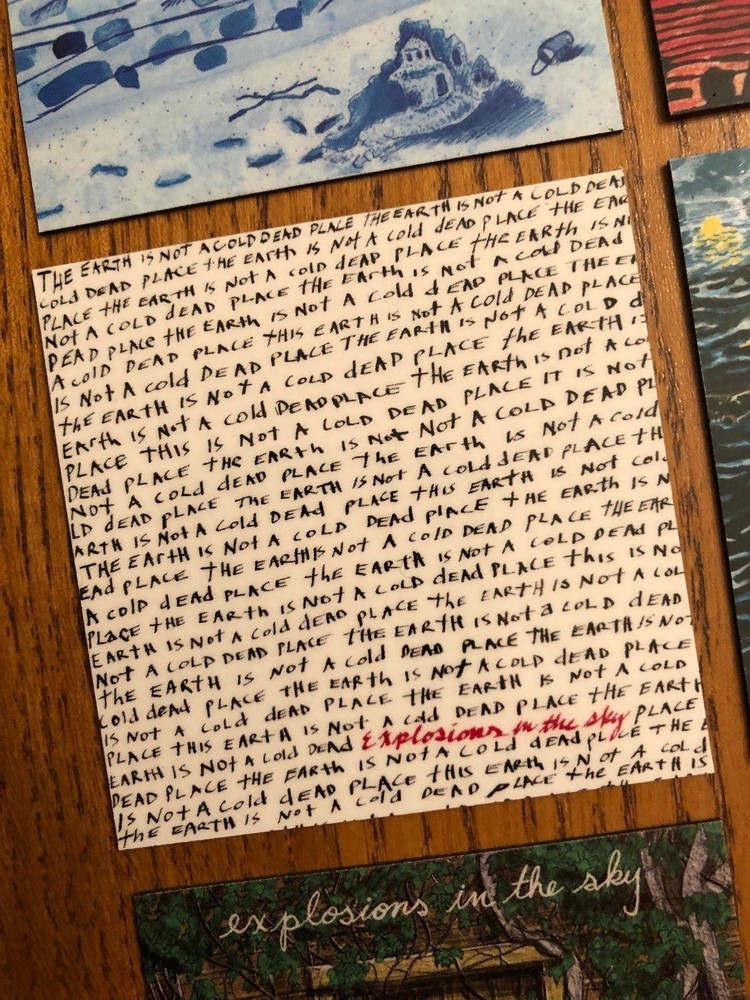 THE EARTH IS NOT A COLD DEAD PLACE THE EARTH IS NOT A COLD DEAD
COLD DEAD PLACE tHE EARth IS NOt A Cold dEAD PLACE tHE EAR
PLACE tHE EARTH IS Not A COLD dEAD PLACE tHE EARTH IS N
Not A COLD dEAD PLACE tHE EArth is Not A cold DEAD
DEAD PLACE tHE EARth IS Not A Cold dEAD PLACE THE E
A COLD DEAD PLACE tHIS EARTH IS NOt A Cold DEAD PLACE
IS Not A cold DEAD PLACE THE EARTH IS Not A COLD d
tHE EARTH IS Not A COLD dEAD PLACE tHE EARTH I
EARth IS Not A cold DEAD PLACE tHE EARth is not A Co
PLACE THIS IS NOT A COLD DEAD PLACE IT IS NOT
DEAD PLACE tHE EARth IS Not Not A COLD DEAD PL
Not A COLD dEAD PLACE the EArth IS Not A Cold
LD dEAD PLACE THE EARTH IS Not A Cold dEAD PLACE tH
ARTH IS Not A Cold DEAD PLACE tHIS EARTH IS Not Col
THE EARtH IS Not A COLD DEAD PLACE tHE EARTH IS N
EAd PLACE tHE EARTH IS Not A COLD DEAD PLACE tHE EAR
A Cold dEAD PLACE tHE EARTH IS Not A COLD DEAD PL
PLACE tHE EARtH IS Not A COLD dEAD PLACE this IS No
EARTH IS Not A Cold dEAD PLACE tHE EARtH IS Not A COL
Not A COLD DEAD PLACE THE EARTH IS Not a COLD DEAD
tHE EARTH IS Not A Cold DEAD PLACE THE EARTH IS Not
Cold dEad PLACE tHE EARtH IS Not A COLD dEAD PLACE
IS Not A Cold dEAD PLACE tHE EARTH IS Not A COLD
PLACE tHIS EARTH IS Not A cold DEAD PLACE tHE EARt
EARtH IS Not A Cold DEAD Explosions in the sky PLACE
DEAD PLACE tHE EARtH IS Not A COLd dEAd PLACE tHE
IS Not A Cold dEAD PLACE tHIS EARTH IS Not A COLd
tHE EARTH IS Not A Cold DEAD PLACE tHE EARTH IS
explosions in the sky